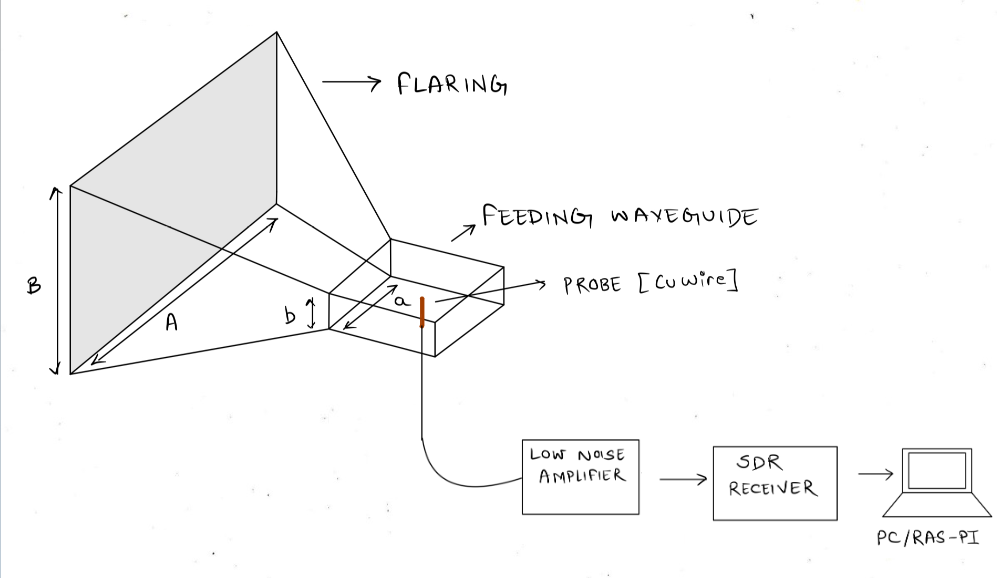 FLARING
FEEDING WAVEGUIDE
PROBE [Cu wire]
B
A
b
a
LOW NOISE
AMPLIFIER
SDR
RECEIVER
PC/RAS-PI